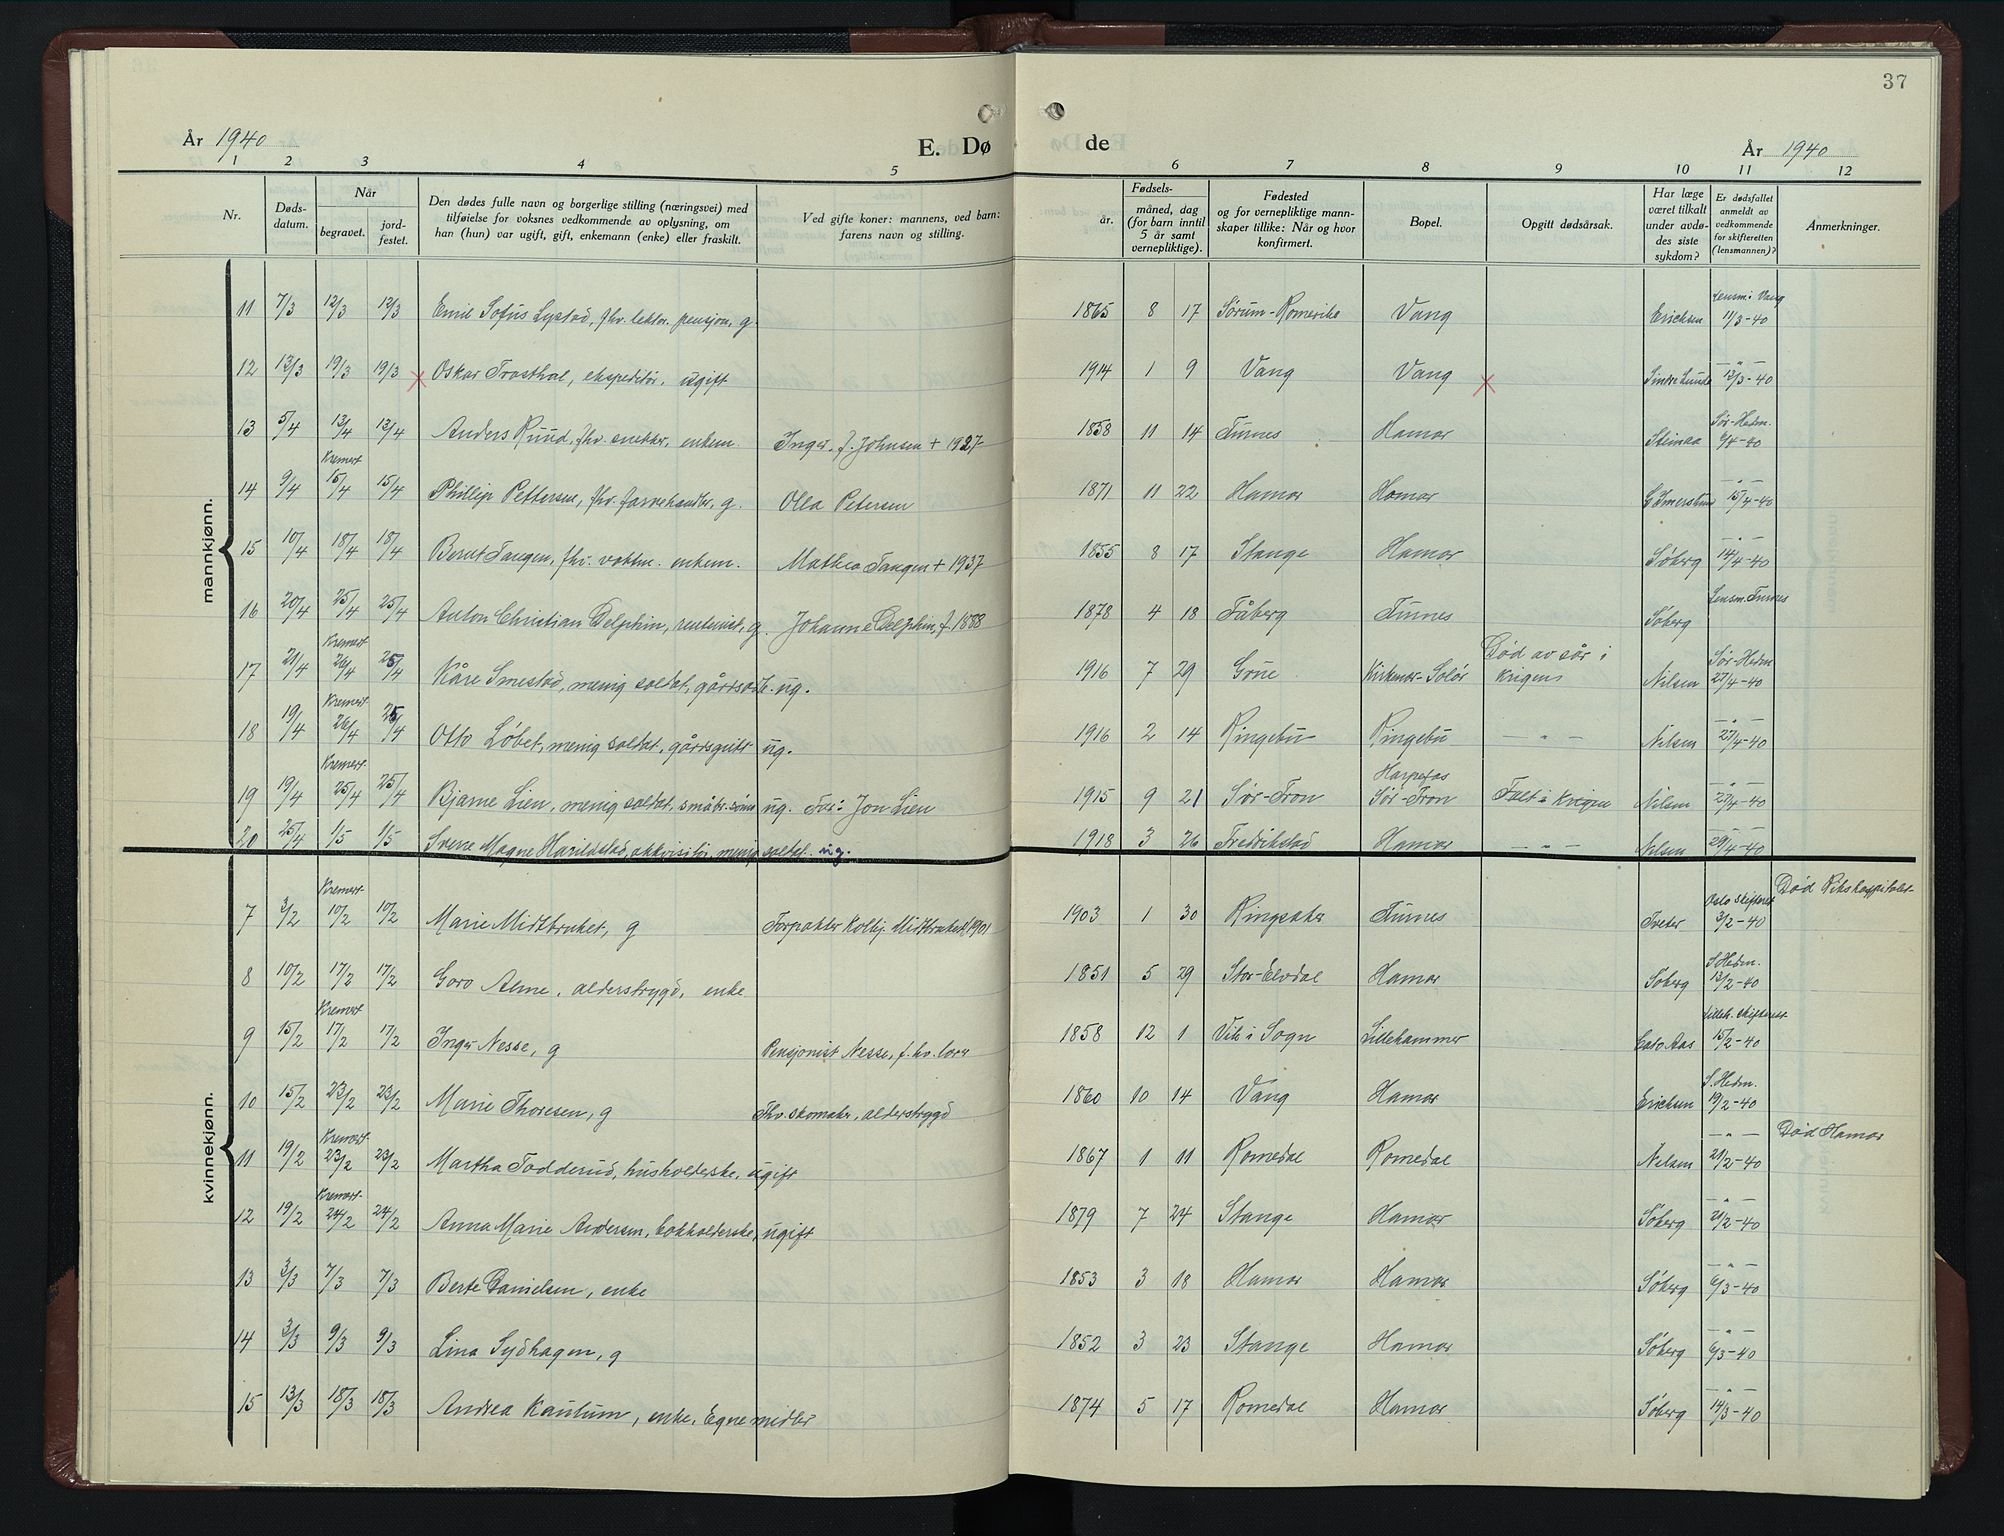 37
År 1940
E. Dø
de
År 1940
1 2 3 4 5 6 7 8 9 10 11 12
Nr.
Døds-
datum.
Når
begravet.
jord-
festet.
Den dødes fulle navn og borgerlige stilling (næringsvei) med
tilføielse for voksnes vedkommende av oplysning, om
han (hun) var ugift, gift, enkemann (enke) eller fraskilt.
Ved gifte koner: mannens, ved barn:
farens navn og stilling.
Fødsels-
år.
måned, dag
(for barn inntil
5 år samt
vernepliktige).
Fødested
og for vernepliktige mann-
skaper tillike: Når og hvor
konfirmert.
Bopel.
Opgitt dødsårsak.
Har læge
været tilkalt
under avdø-
des siste
sykdom?
Er dødsfallet
anmeldt av
vedkommende
for skifteretten
(lensmannen)?
Anmerkninger.
mannkjønn.
11 7/3 12/3 12/3 Emil Sofus Lystad, fhv. lektor. pensjon, g. 1865 8 17 Sørum-Romerike Vang Erichsen Lensm. i Vang 11/3-40
12 13/3 19/3 19/3 × Oskar Trosthol, ekspeditør. ugift 1914 1 9 Vang Vang × Sindre Lunde — " — 12/3-40
13 5/4 13/4 13/4 Anders Ruud, fhv. snekker, enkem. Inger, f. Johnsen + 1927 1858 11 14 Furnes Hamar Steinaa Sør-Hedm. 6/4-40
14 9/4 Kremert 15/4 15/4 Phillip Pettersen, fhv. farvehandler, g. Olla Petersen 1871 11 22 Hamar Hamar — " — 15/4-40
15 10/4 18/4 18/4 Bernt Tangen, fhv. vaktm. enkem. Mathea Tangen + 1937 1855 8 17 Stange Hamar Søberg — " — 14/4-40
16 20/4 25/4 25/4 Anton Christian Delphin, rentenist, g. Johanne Delphin, f. 1888 1878 4 18 Fåberg Furnes Søberg Lensm. Furnes
17 21/4 Kremert 26/4 25/4 Kåre Smestad, menig soldat, ug. 1916 7 29 Grue Kirkenær-Solør Død av sår i krigen Nilsen Sør-Hedm 27/4-40
18 19/4 Kremert 26/4 25/4 Otto Løbet, menig soldat, gårdsgutt ug. 1916 2 14 Ringebu Ringebu — " — Nilsen — " — 27/4-40
19 19/4 Kremert 25/4 25/4 Bjarne Lien, menig soldat, småbr.sønn ug. Far: Jon Lien 1915 9 21 Sør-Fron Harpefos Sør-Fron Falt i krigen Nilsen — " — 27/4-40
20 25/4 1/5 1/5 Sverre Magne Harildstad, akkvisitør, menig soldat. ug. 1918 3 26 Fredrikstad Hamar — " — Nilsen 29/4-40
kvinnekjønn.
7 3/2 Kremert 10/2 10/2 Marie Midtbruket, g Forpakter Kolbj. Midtbruket f. 1901 1903 1 30 Ringsaker Furnes Tveter Oslo skifteret 3/2-40 Død Rikshospitalet
8 10/2 17/2 17/2 Goro Alme, alderstrygd, enke 1851 5 29 Stor-Elvdal Hamar Søberg S. Hedm. 13/2-40
9 15/2 Kremert 17/2 17/2 Inger Nesse, g Pensjonist Nesse, f.hv. lærer 1858 12 1 Vik i Sogn Lillehammer Cato Aas Lilleh. skifteret 15/2-40
10 15/2 23/2 23/2 Marie Thoresen, g Fhv. skomaker, alderstrygd 1860 10 14 Vang Hamar Erichsen S. Hedm. 19/2-40
11 19/2 Kremert 23/2 23/2 Martha Todderud, husholderske, ugift 1867 1 11 Romedal Romedal Nilsen — " — 21/2-40 Død Hamar
12 19/2 Kremert 24/2 24/2 Anna Marie Andersen, bokholderske, ugift 1879 7 24 Stange Hamar Søberg — " — 21/2-40
13 3/3 7/3 7/3 Berte Danielsen, enke 1853 3 18 Hamar Hamar Søberg — " — 6/3-40
14 3/3 9/3 9/3 Lina Sydhagen, g 1852 3 23 Stange Hamar Søberg — " — 6/3-40
15 13/3 18/3 18/3 Andrea Kaulum, enke, Egne midler 1874 5 17 Romedal Hamar Søberg — " — 14/3-40